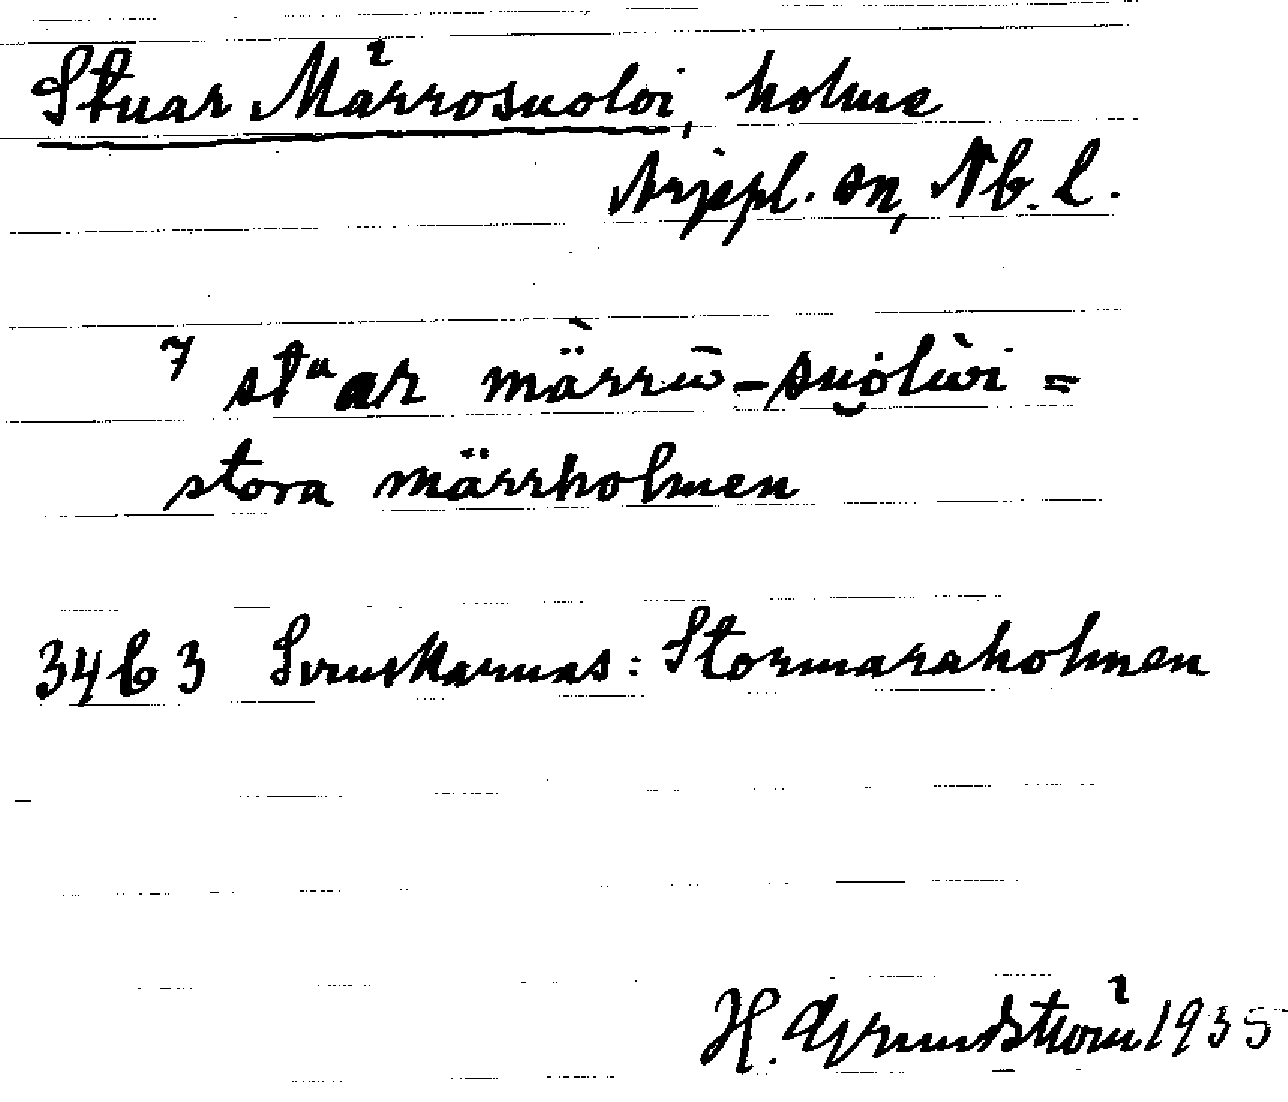 Stuar Märrosuoloi, holme
Arjepl. sn, Nb. L.
7 stᵘar märrɯ̀-suo̯lɯ̀i =
stora märrholmen
3463 Svenskarnas: Stormaraholmen
H. Grundström 1935